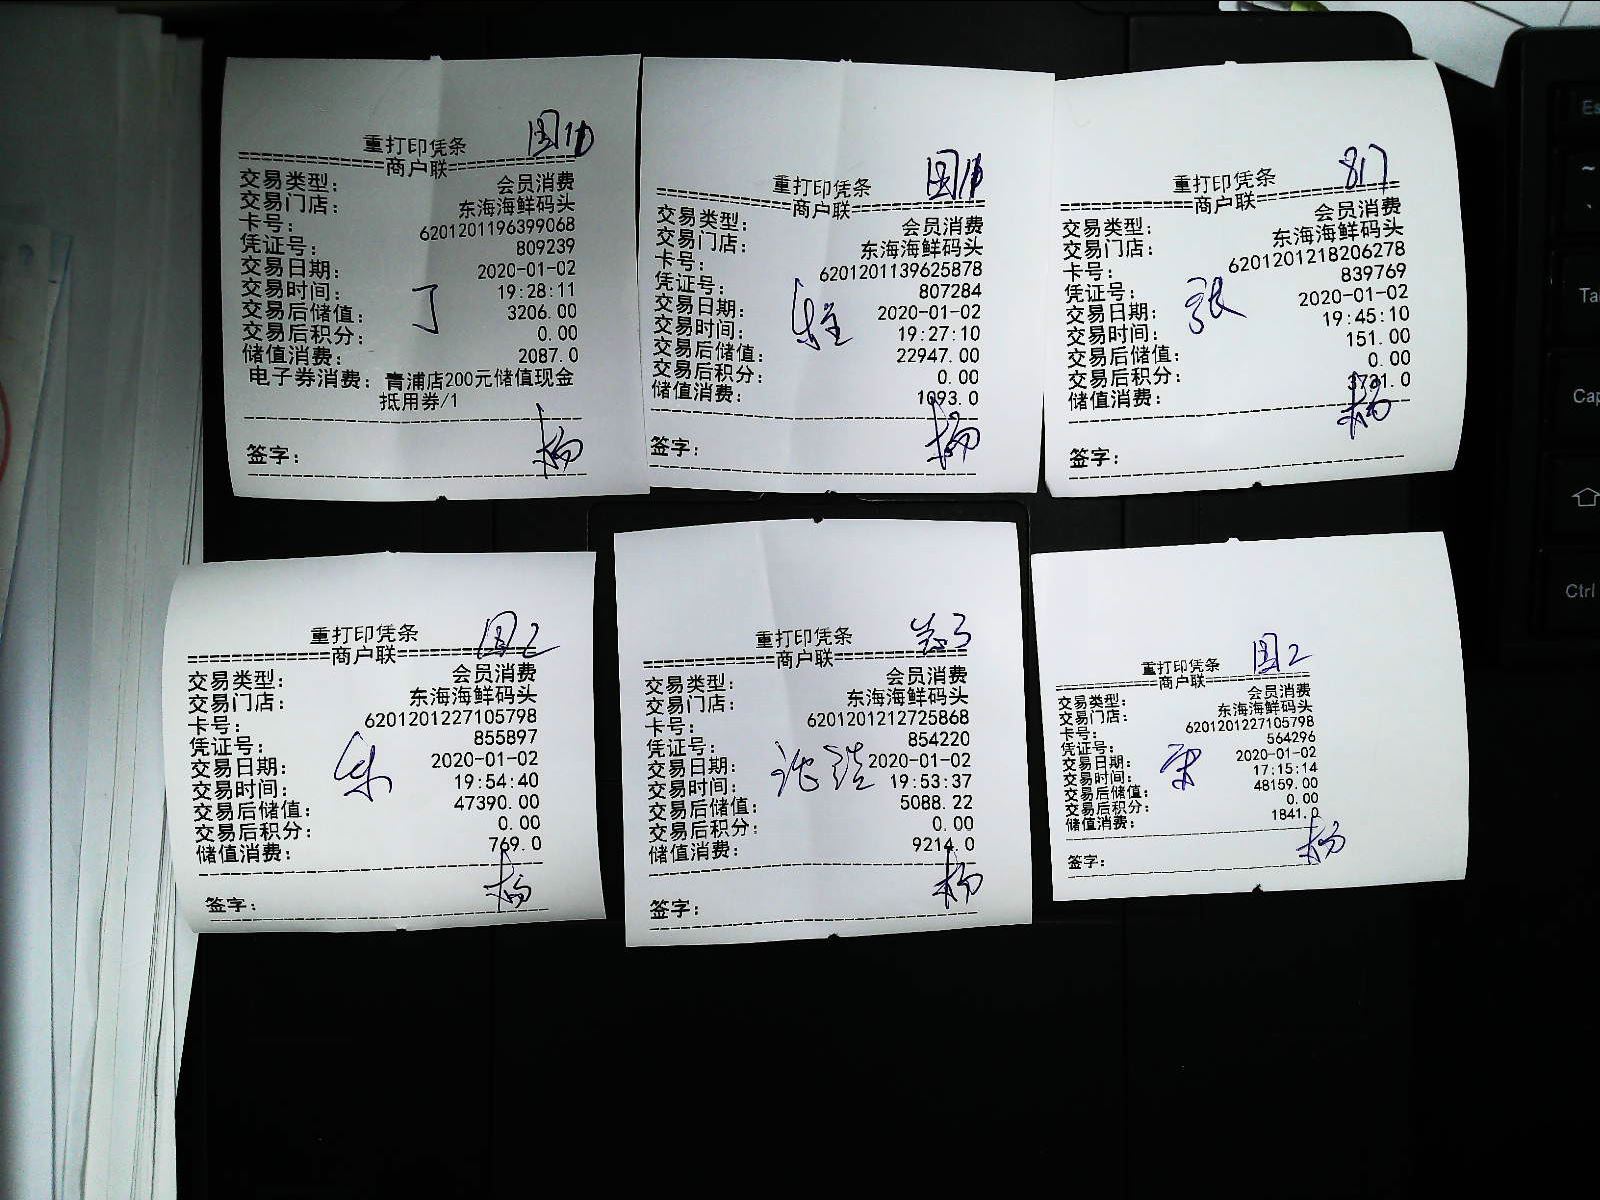 重打印凭条
================商户联================
交易类型： 会员消费
交易门店： 东海海鲜码头
卡号： 6201201196399068
凭证号： 809239
交易日期： 2020-01-02
交易时间： 19:28:11
交易后储值： 3206.00
交易后积分： 0.00
储值消费： 2087.0
电子券消费：青浦店200元储值现金
抵用券/1
丁
签字： 杨
重打印凭条
================商户联================
交易类型： 会员消费
交易门店： 东海海鲜码头
卡号： 6201201139625878
凭证号： 807284
交易日期： 2020-01-02
交易时间： 19:27:10
交易后储值： 22947.00
交易后积分： 0.00
储值消费： 1093.0
签字： 杨
817
重打印凭条
================商户联================
交易类型： 会员消费
交易门店： 东海海鲜码头
卡号： 6201201218206278
凭证号： 839769
交易日期： 2020-01-02
交易时间： 19:45:10
交易后储值： 151.00
交易后积分： 0.00
储值消费： 3731.0
张
签字： 杨
重打印凭条 国2
================商户联================
交易类型： 会员消费
交易门店： 东海海鲜码头
卡号： 6201201227105798
凭证号： 855897
交易日期： 2020-01-02
交易时间： 19:54:40
交易后储值： 47390.00
交易后积分： 0.00
储值消费： 769.0
签字： 杨
重打印凭条
================商户联================
交易类型： 会员消费
交易门店： 东海海鲜码头
卡号： 6201201212725868
凭证号： 854220
交易日期： 2020-01-02
交易时间： 19:53:37
交易后储值： 5088.22
交易后积分： 0.00
储值消费： 9214.0
签字： 杨
重打印凭条 国2
================商户联================
交易类型： 会员消费
交易门店： 东海海鲜码头
卡号： 6201201227105798
凭证号： 564296
交易日期： 2020-01-02
交易时间： 17:15:14
交易后储值： 48159.00
交易后积分： 0.00
储值消费： 1841.0
签字： 杨
Ctrl